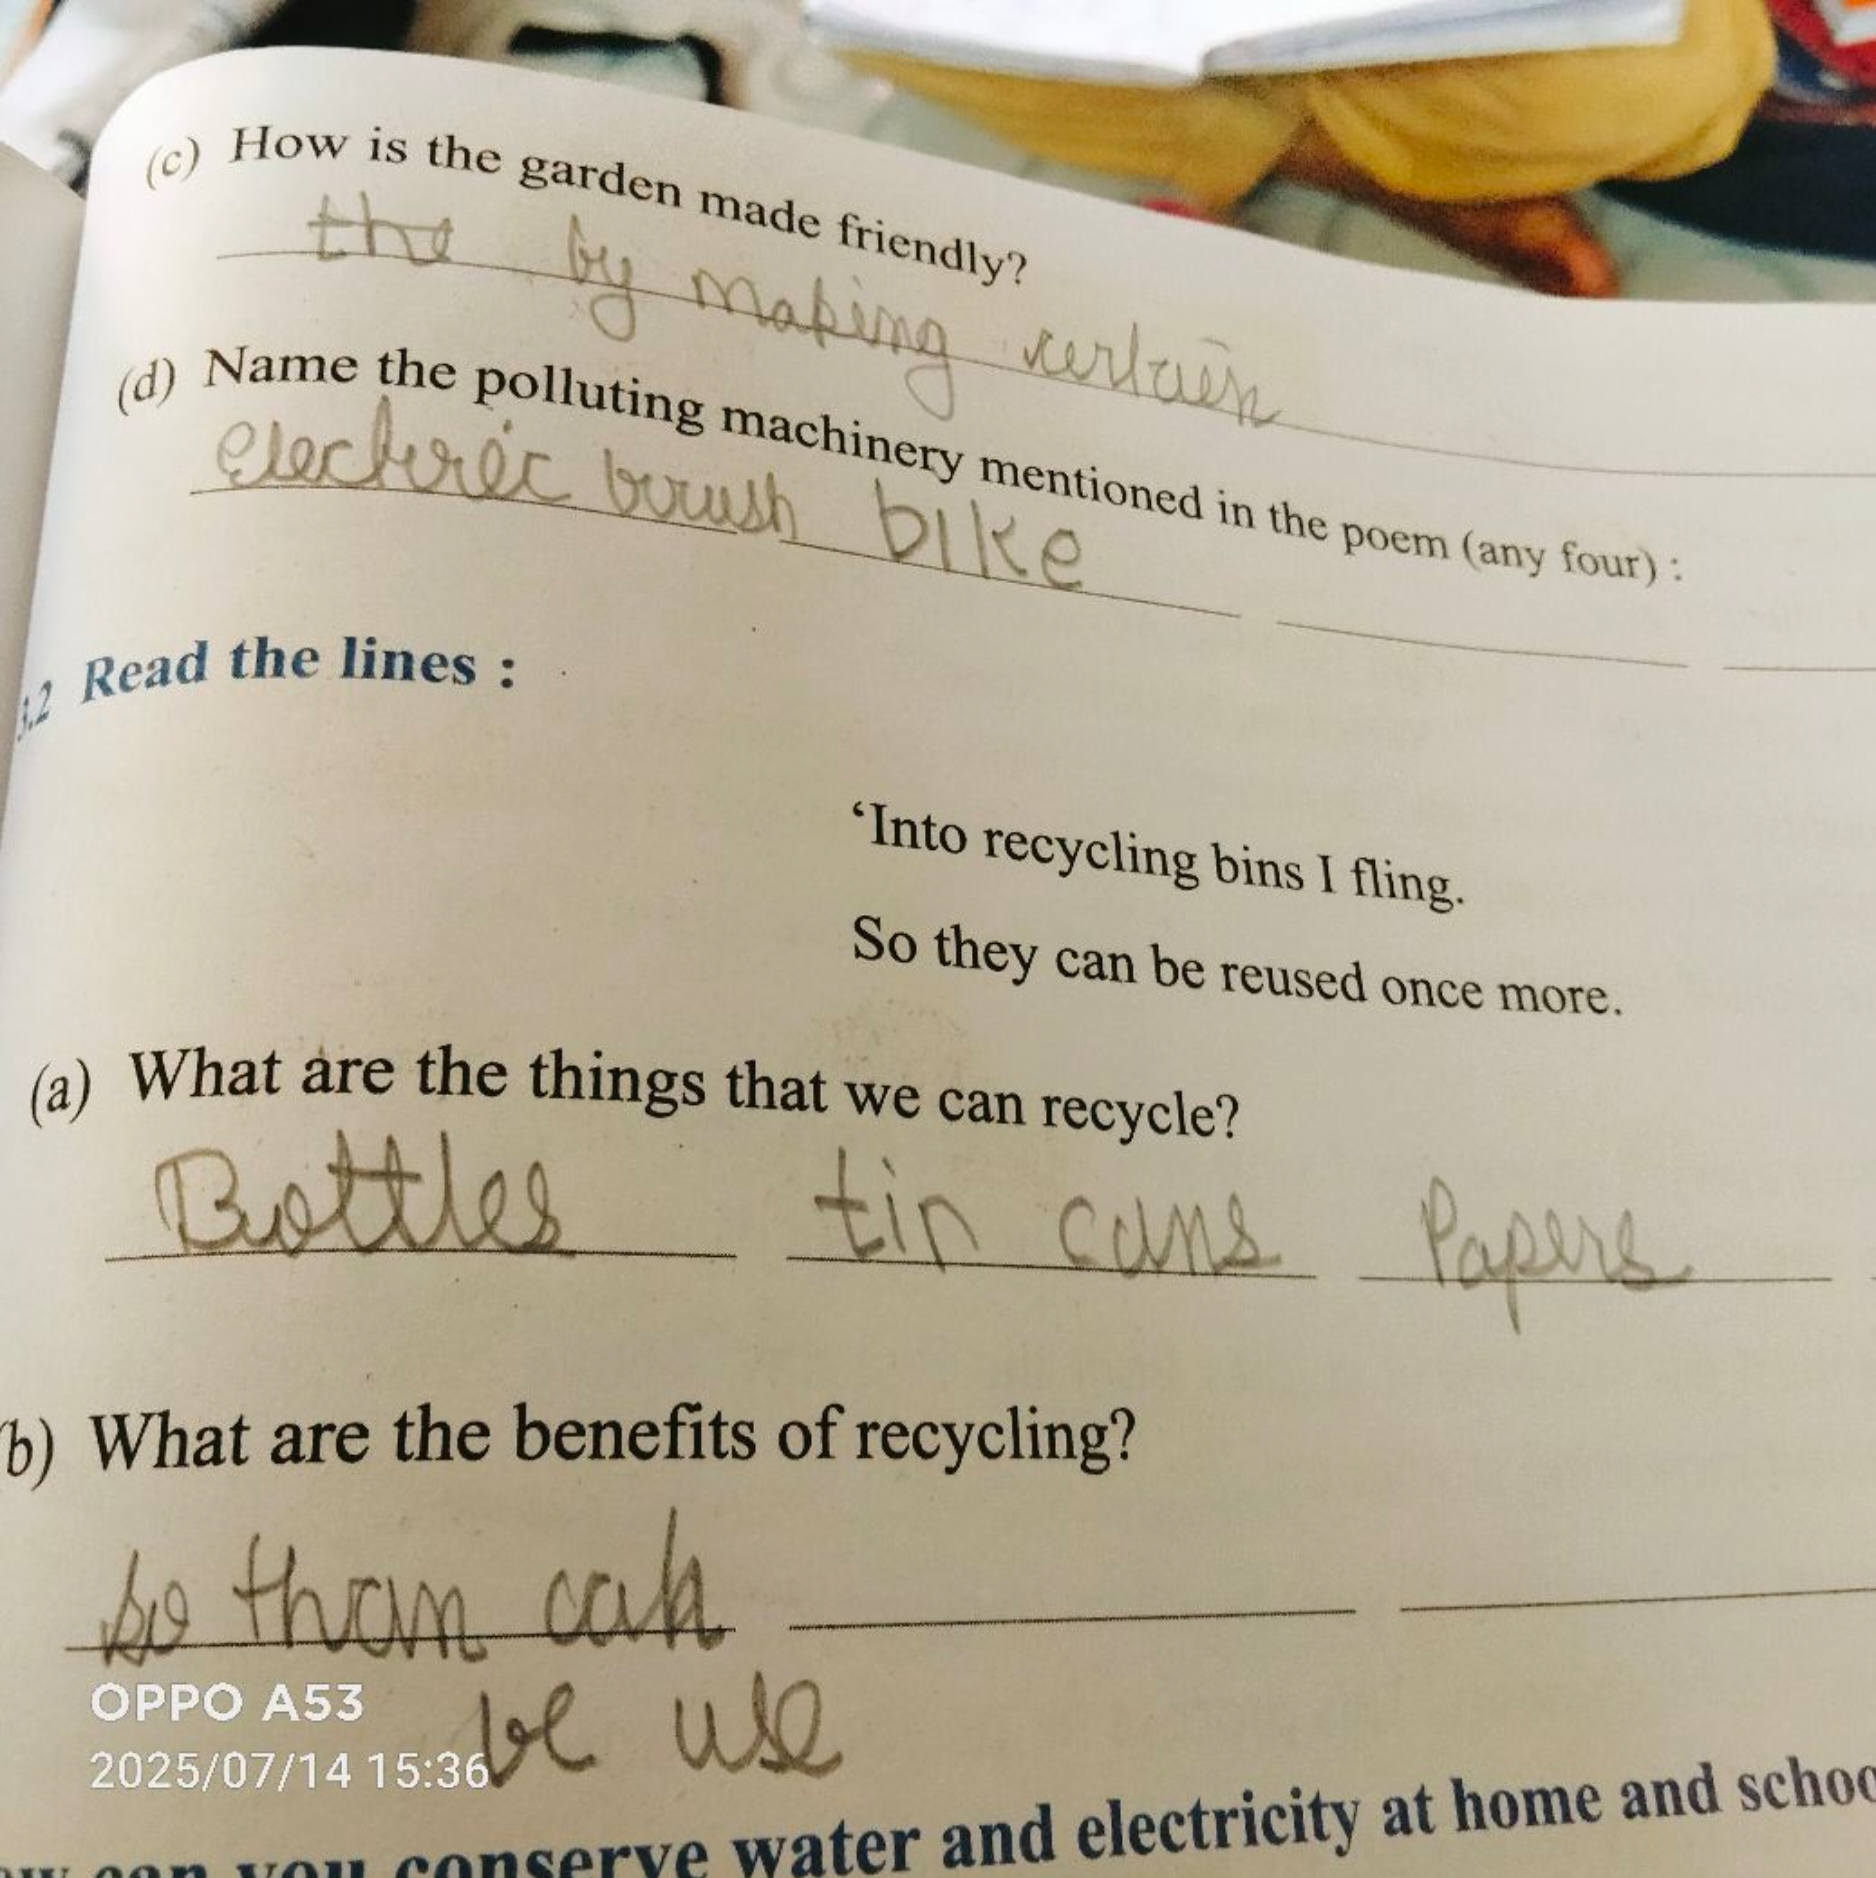 (c) How is the garden made friendly?
the by making certain
(d) Name the polluting machinery mentioned in the poem (any four) :
electric brush bike
3.2 Read the lines :
‘Into recycling bins I fling.
So they can be reused once more.
(a) What are the things that we can recycle?
Bottles tin cans Papers
b) What are the benefits of recycling?
so than can
be use
OPPO A53
2025/07/14 15:36
can you conserve water and electricity at home and schoo